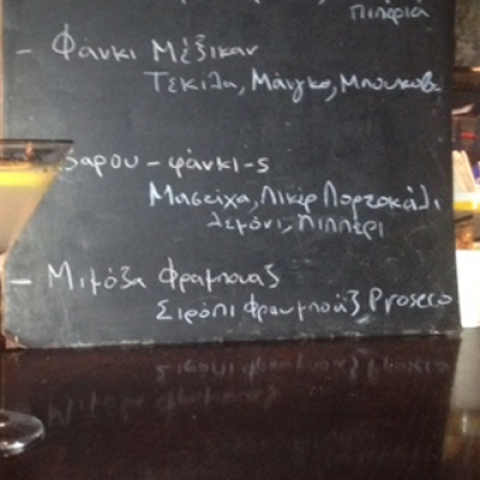 πιπεριά
- Φάνκι Μέξικαν
Τεκίλα, Μάνγκο, Μπουκοβ
βαρου - φάνκι - s
Μαστίχα, Λικέρ Πορτοκάλι
λεμόνι, πιππέρι
- Μιμόζα Φραμπουάζ
Σιρόπι Φραμπουάζ Proseco